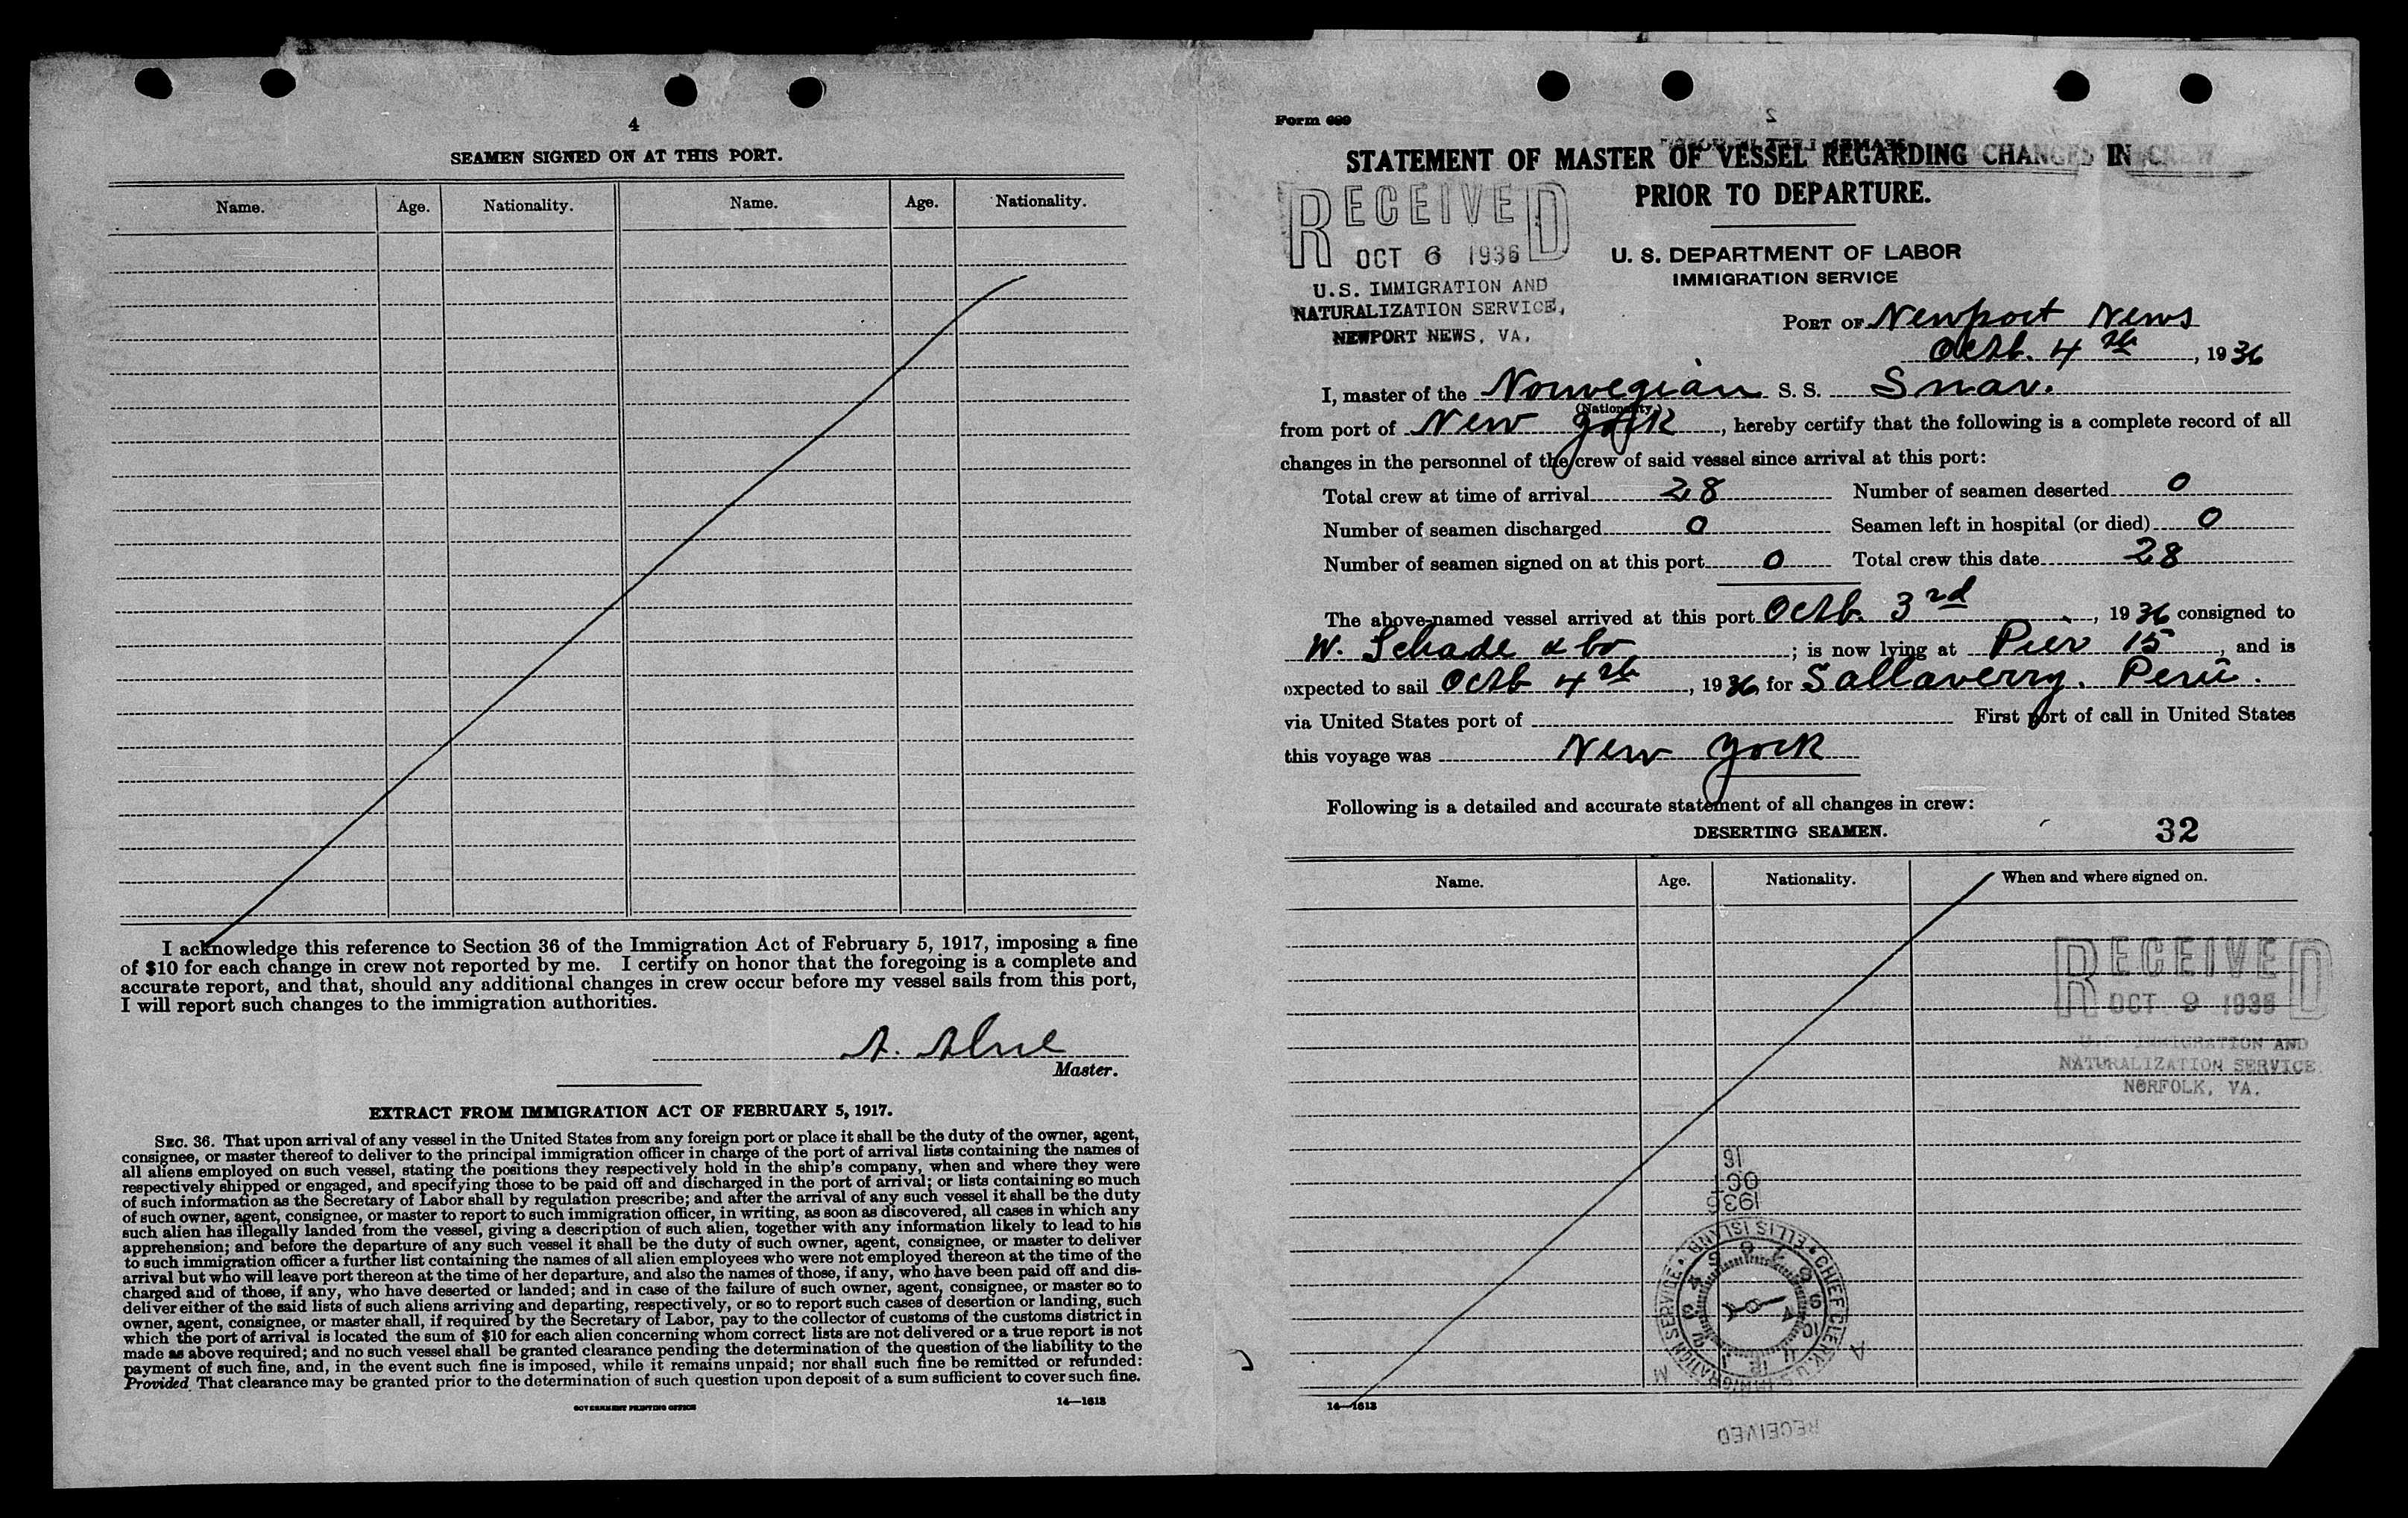 4
SEAMEN SIGNED ON AT THIS PORT.
Name. Age. Nationality. Name. Age. Nationality.
I acknowledge this reference to Section 36 of the Immigration Act of February 5, 1917, imposing a fine
of $10 for each change in crew not reported by me. I certify on honor that the foregoing is a complete and
accurate report, and that, should any additional changes in crew occur before my vessel sails from this port,
I will report such changes to the immigration authorities.
A.
Master.
EXTRACT FROM IMMIGRATION ACT OF FEBRUARY 5, 1917.
SEC. 36. That upon arrival of any vessel in the United States from any foreign port or place it shall be the duty of the owner, agent,
consignee, or master thereof to deliver to the principal immigration officer in charge of the port of arrival lists containing the names of
all aliens employed on such vessel, stating the positions they respectively hold in the ship's company, when and where they were
respectively shipped or engaged, and specifying those to be paid off and discharged in the port of arrival; or lists containing so much
of such information as the Secretary of Labor shall by regulation prescribe; and after the arrival of any such vessel it shall be the duty
of such owner, agent, consignee, or master to report to such immigration officer, in writing, as soon as discovered, all cases in which any
such alien has illegally landed from the vessel, giving a description of such alien, together with any information likely to lead to his
apprehension; and before the departure of any such vessel it shall be the duty of such owner, agent, consignee, or master to deliver
to such immigration officer a further list containing the names of all alien employees who were not employed thereon at the time of the
arrival but who will leave port thereon at the time of her departure, and also the names of those, if any, who have been paid off and dis-
charged and of those, if any, who have deserted or landed; and in case of the failure of such owner, agent, consignee, or master so to
deliver either of the said lists of such aliens arriving and departing, respectively, or so to report such cases of desertion or landing, such
owner, agent, consignee, or master shall, if required by the Secretary of Labor, pay to the collector of customs of the customs district in
which the port of arrival is located the sum of $10 for each alien concerning whom correct lists are not delivered or a true report is not
made as above required; and no such vessel shall be granted clearance pending the determination of the question of the liability to the
payment of such fine, and, in the event such fine is imposed, while it remains unpaid; nor shall such fine be remitted or refunded:
Provided, That clearance may be granted prior to the determination of such question upon deposit of a sum sufficient to cover such fine.
GOVERNMENT PRINTING OFFICE 14—1613
Form 689
STATEMENT OF MASTER OF VESSEL REGARDING CHANGES IN CREW
PRIOR TO DEPARTURE.
RECEIVED
OCT 6 1936
U.S. IMMIGRATION AND
NATURALIZATION SERVICE,
NEWPORT NEWS, VA.
U. S. DEPARTMENT OF LABOR
IMMIGRATION SERVICE
PORT OF Newport News
Octb. 4th, 1936
I, master of the Norwegian S. S. Snar.
(Nationality)
from port of New York, hereby certify that the following is a complete record of all
changes in the personnel of the crew of said vessel since arrival at this port:
Total crew at time of arrival 28 Number of seamen deserted 0
Number of seamen discharged 0 Seamen left in hospital (or died) 0
Number of seamen signed on at this port 0 Total crew this date 28
The above-named vessel arrived at this port Octb. 3rd, 1936 consigned to
W. Schade & Co; is now lying at Pier 15, and is
expected to sail Octb 4th, 1936 for Sallaverry. Perú.
via United States port of First port of call in United States
this voyage was New York
Following is a detailed and accurate statement of all changes in crew:
DESERTING SEAMEN. 32
Name. Age. Nationality. When and where signed on.
RECEIVED
OCT 9 1936
U.S. IMMIGRATION AND
NATURALIZATION SERVICE
NORFOLK, VA.
16
OCT
1936
ELLIS ISLAND • CHIEF CLERK U.S. IMMIGRATION SERVICE
RECEIVED
14—1613